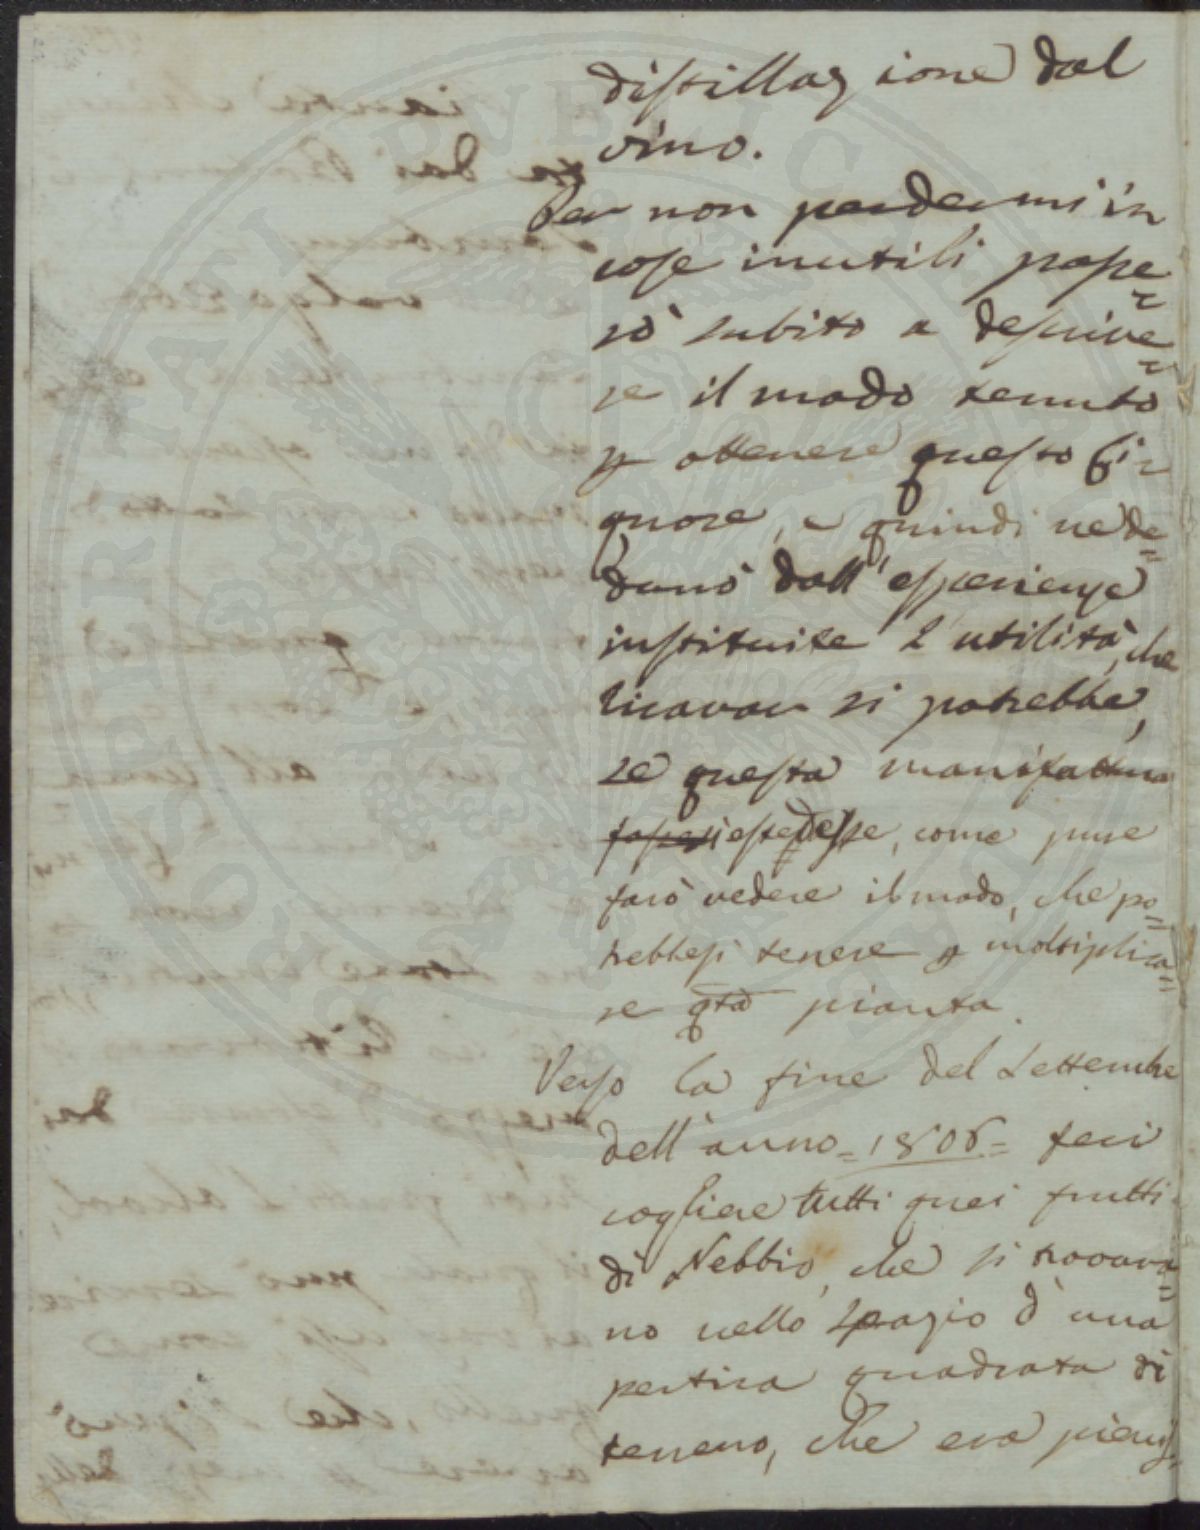 distillazione dal
vino.
Per non perdermi in
cose inutili passe=
rò subito a descrive=
re il modo tenuto
p ottenere questo li=
quore, e quindi ve de=
durrò dall'esperienze
instituite l'utilità, che
ricavar si potrebbe,
se questa manifattura
si estedesse, come pure
farò vedere il modo, che po=
trebbesi tenere p moltiplica=
re qta pianta.
Verso la fine del Settembre
dell'anno =1806= feci
cogliere tutti quei frutti
di Nebbio, che si trovava=
no nello spazio d'una
pertica quadrata di
terreno, che era pienis=
PROSPERITATI PVBLICAE